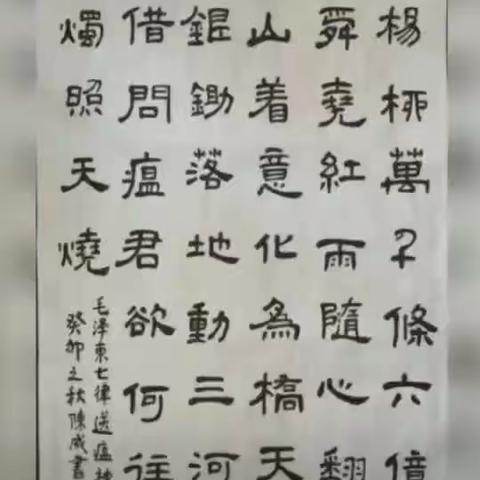 楊柳萬千條六億
舜堯紅雨隨心翻
山着意化為橋天
銀鋤落地動三河
借問瘟君欲何往
燭照天燒
毛泽東七律送瘟神
癸卯之秋陳威書